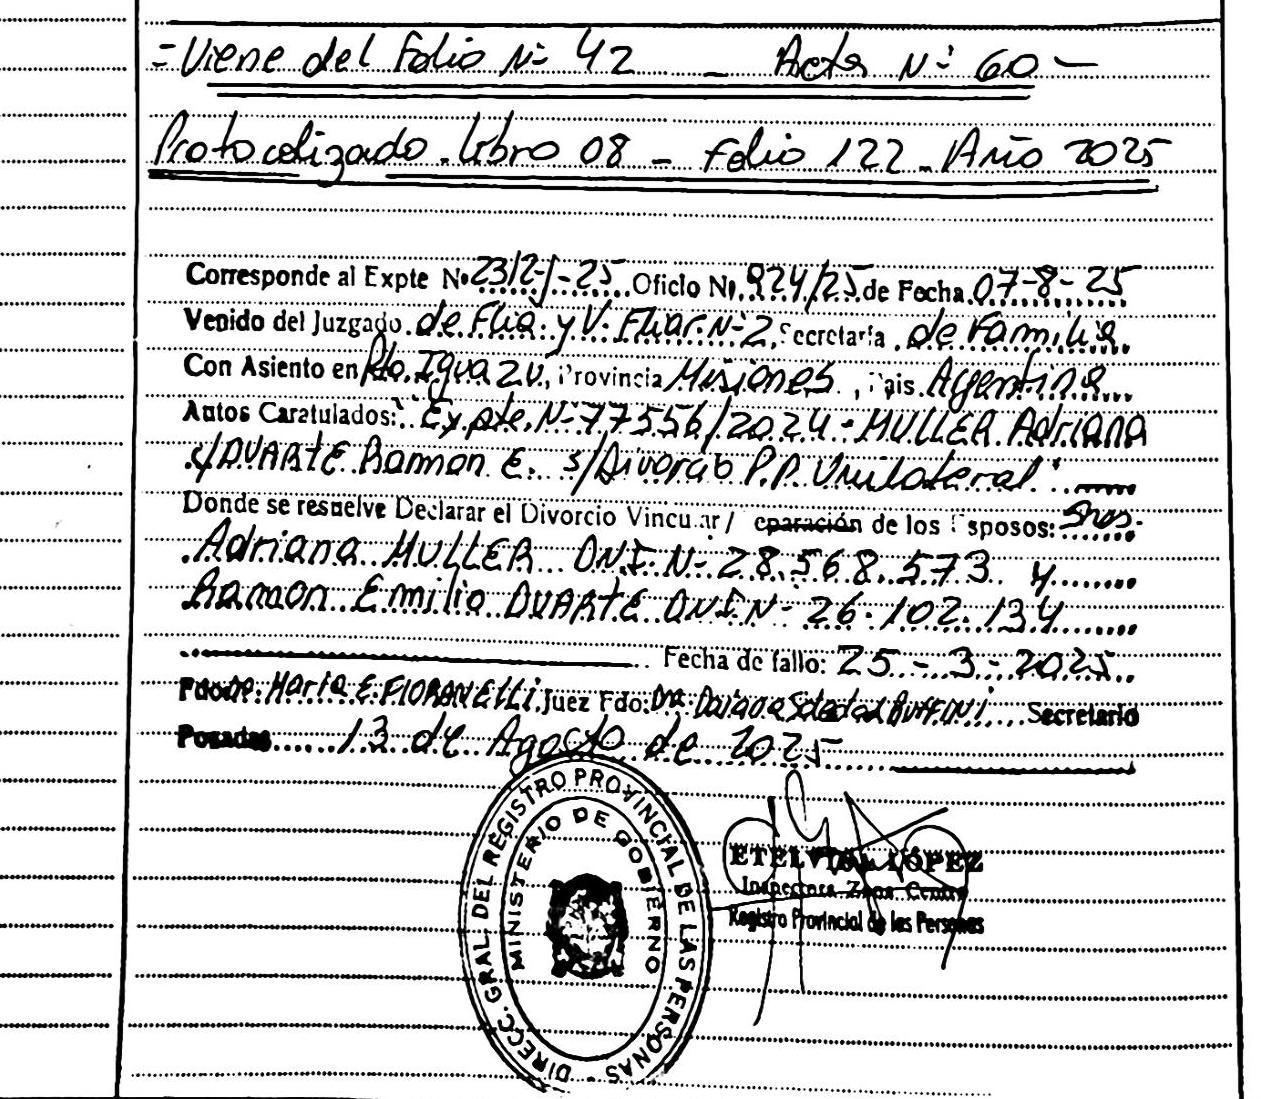 = Viene del Folio Nº 42 - Acta Nº 60 -
Protocolizado - Libro 08 - Folio 122 - Año 2025
Corresponde al Expte Nº 2312-J-25 Oficio Nº 924/25 de Fecha 07-8-25
Venido del Juzgado de Flia. y V. Fliar. Nº 2 Secretaría de Familia
Con Asiento en Pto. Iguazú, Provincia Misiones, Pais Argentina
Autos Caratulados: "Expte. Nº 77556/2024 - MULLER Adriana
c/ DUARTE Ramon E. s/ Divorcio P.P. Unilateral"
Donde se resuelve Declarar el Divorcio Vincular / eparación de los Esposos: Sres.
Adriana MULLER DNI Nº 28.568.573 y
Ramon Emilio DUARTE DNI Nº 26.102.134
Fecha de fallo: 25-3-2025
Fdo. E. FIORANELLI Juez Fdo: Dra Daiana Soledad Secretario
Posadas 13 de Agosto de 2025
DIRECC. GRAL. DEL REGISTRO PROVINCIAL DE LAS PERSONAS -
MINISTERIO DE GOBIERNO
LÓPEZ
Inspectora Zona Centro
Registro Provincial de las Personas